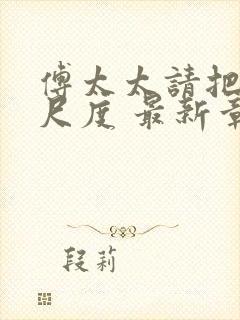 傅太太請把
尺度 最新章
段莉